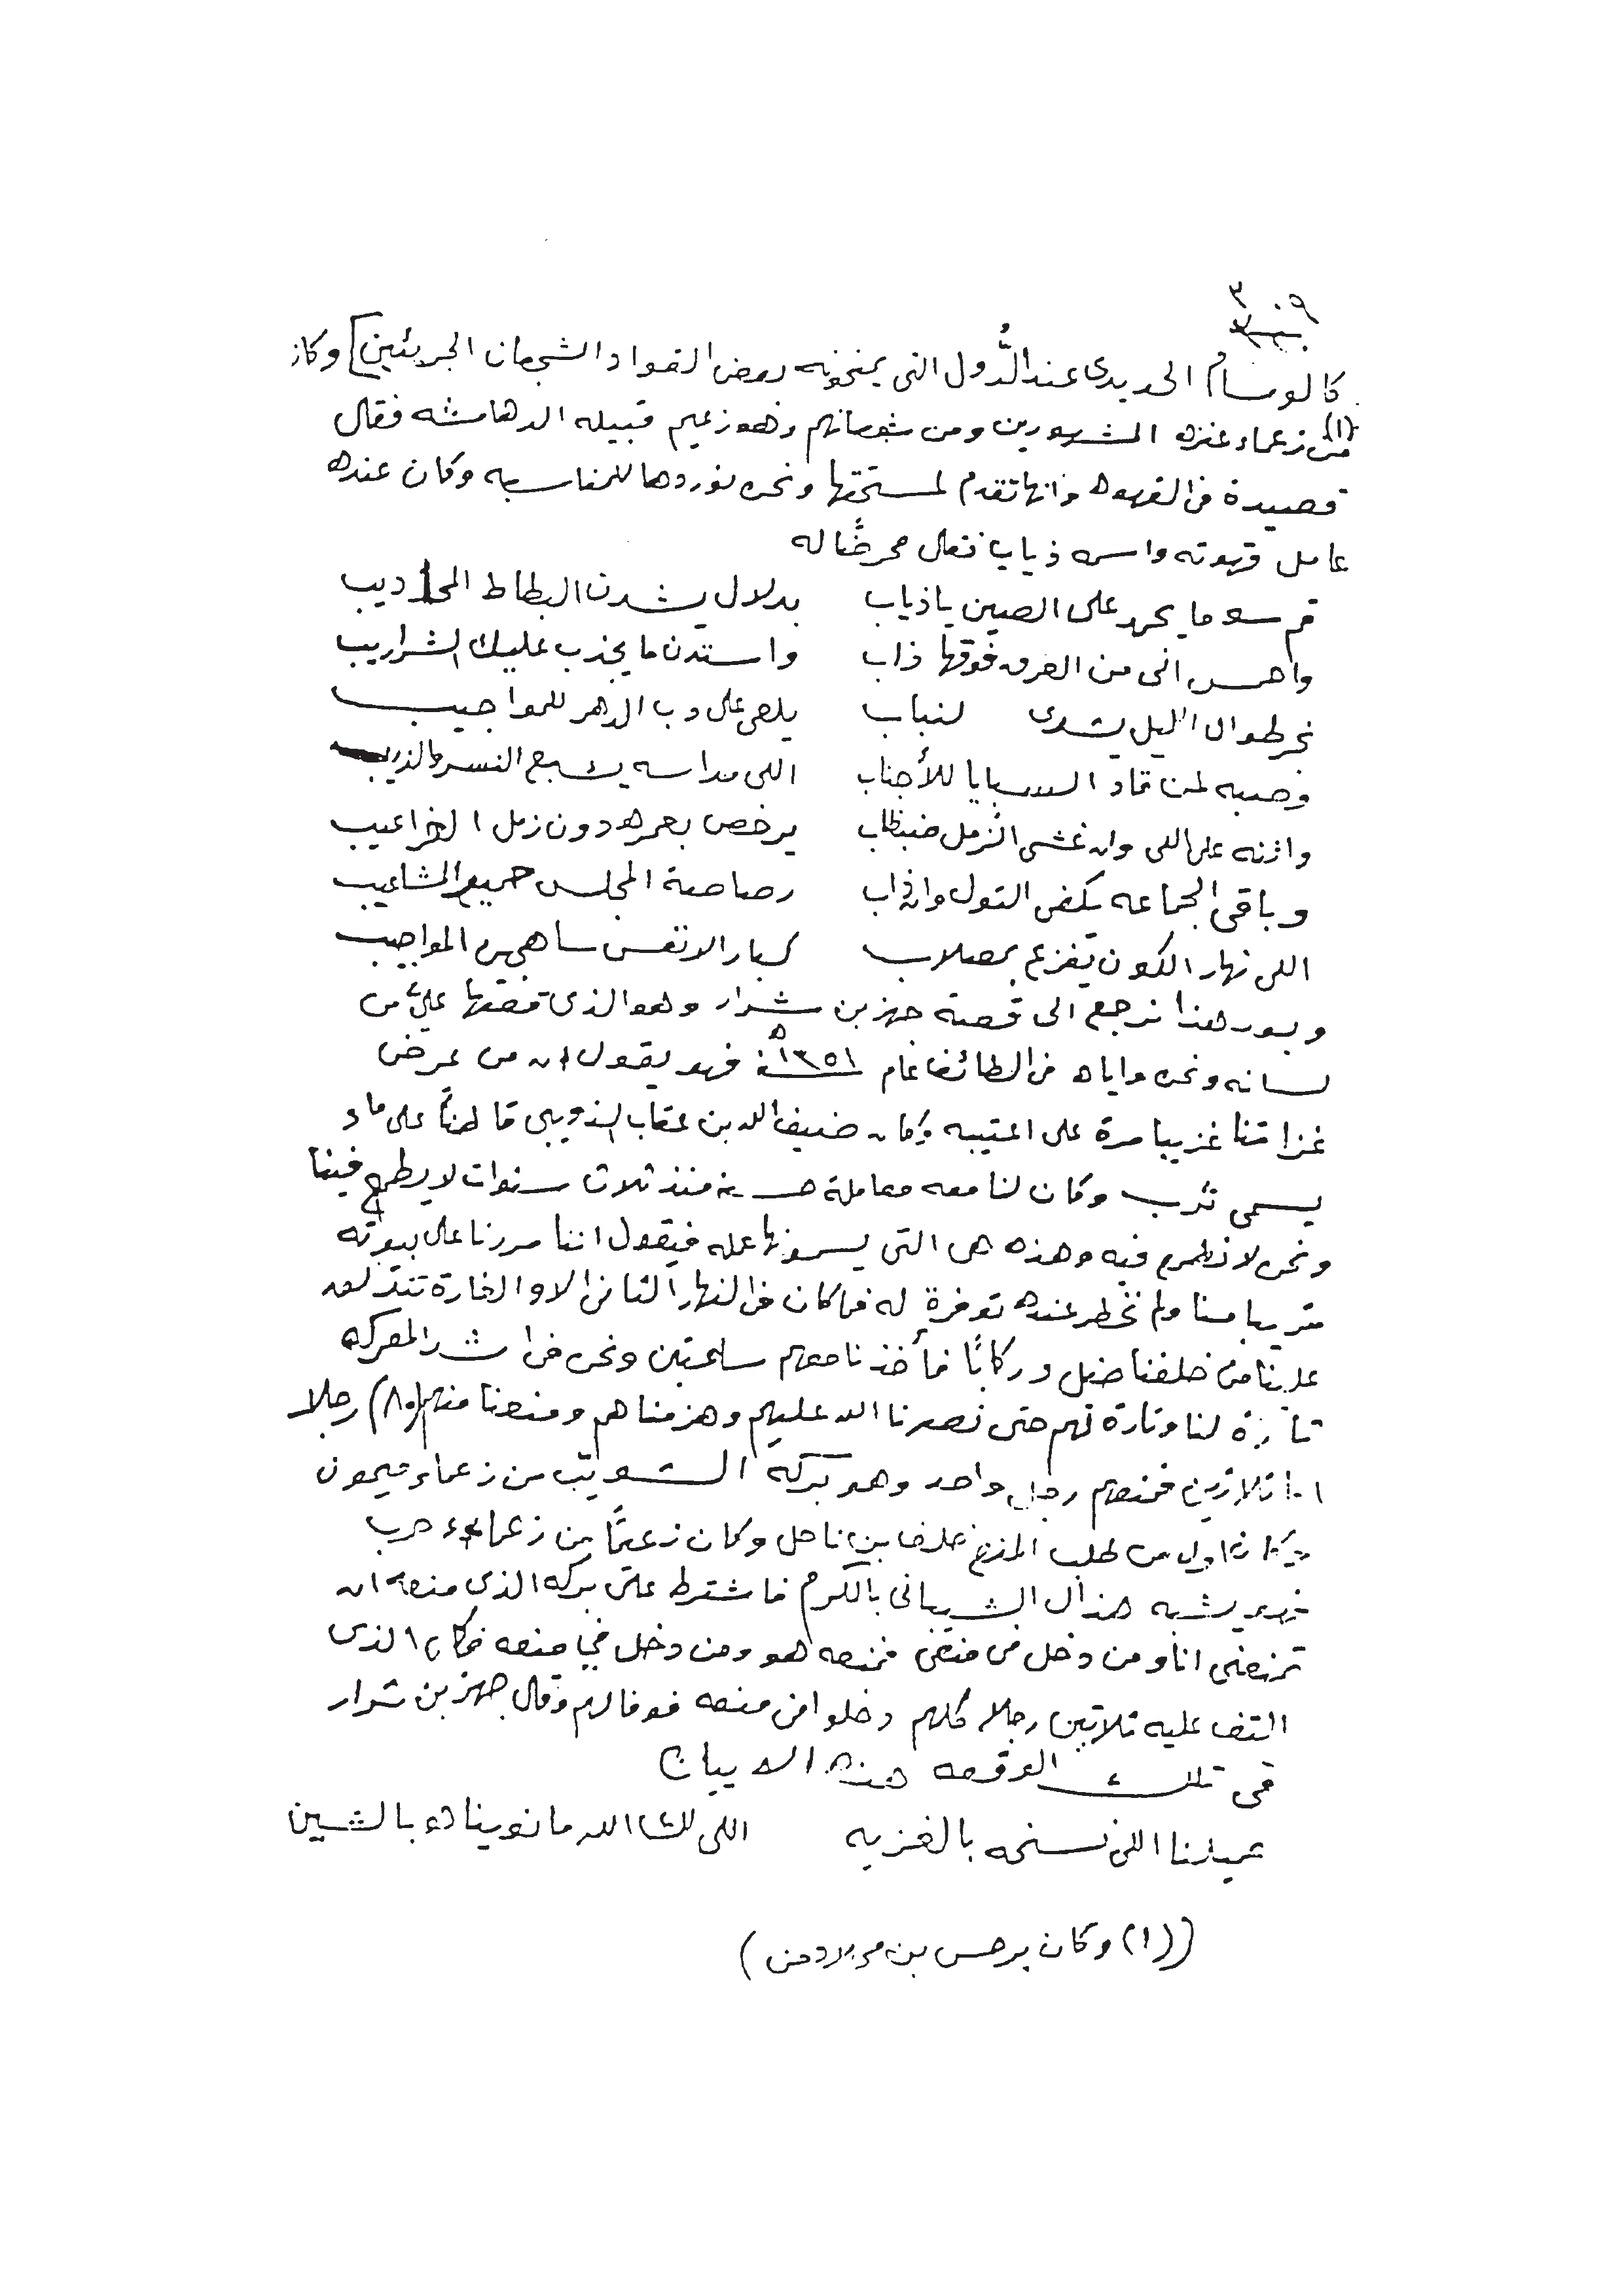 ٣٠٩
كالوسام الحديدى عند الدُّول التى يمنحونه بعض القواد الشجعان الجريئين] وكان
(١) من زعماء عنزه المشهورين ومن شجعانهم وهو زعيم قبيله الدهامشه فقال
قصيدة فى القهوه وانها تقدم لمستحقها ونحن نوردها للمناسبه وكان عنده
عامل قهوته واسمه ذياب فقال محرضًا له
قم سو ما يحمد على الصين ياذياب      بدلال يشدن البطاط المحاديب
واحمس انى من العرق فوقها ذاب      واستدن ما يجذب عليك الشراريب
نجر طوال الليل يشدى لنباب      يلعى على درب الدهر للمواجيب
وصبه لمن قاد السبايا للأجناب      اللى مداسه يشبع النسر والذيب
واثنه على اللى وان غشى الزمل ضبظاب      يرخص بعمره دون زمل الخراعيب
وباقى الجماعه يكفى التول وان ذاب      رصاصة المجلس جميع الشاعيب
اللى نهار الكون تفزع بصلاب      كبار الانفس ساهجين المواجيب
وبعد هذا نرجع الى قصة جهز بن شرار وهو الذى قصها عليَّ من
لسانه ونحن واياه فى الطائف عام ١٣٥١هـ فهو يقول ان من عرض
غزاتنا غزينا مرة على اعتيبه وكان ضيف الله بن عقاب الذويبى قاطنًا على ماء
يسمى ترب وكان لنا معه معاملة حسنة منذ ثلاث سنوات لا يطمع فينا
ونحن لا نطمع فيه وهذه هى التى يسمونها عمله فيقول اننا مررنا على بيوته
قريبا منا ولم نخطر عنده توفرة له فما كان فى النهار الثانى الا والغارة تنقد لهد
علينا من خلفنا خيل وركابًا فأخذنا معهم ساعتين ونحن فى اشد المعركه
تارة لنا وتارة لهم حتى نصرنا الله عليهم وهزمناهم ومنعنا منهم (٨٠) رجلا
اما ثلاثين فمنعهم رجل واحد وهو بركه الشويب من زعماء ميمون
وكان اول من طلب المنع خلف بن ناحل وكان زعيمًا من زعماء حرب
يشبه هذال الشيبانى بالكرم فاشترط على بركه الذى منعه ان
تمنعنى انا ومن دخل فى منعى فمنعه هو ومن دخل فى منعه فكان الذى
التف عليه ثلاثين رجلا كلهم دخلوا فى منعه فوفا لهم وقال جهز بن شرار
فى تلك الوقعه هذه الابيات
عميلنا اللى نسنحه بالغزيه      اللى لك الله ما نويناه بالشين
((١) وكان برجس بن مجلاد من)